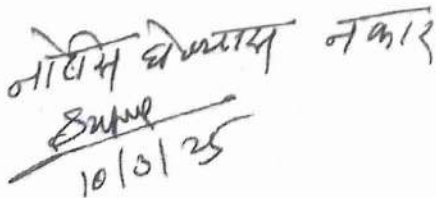 नोटीस घेण्यास नकार
10/3/25